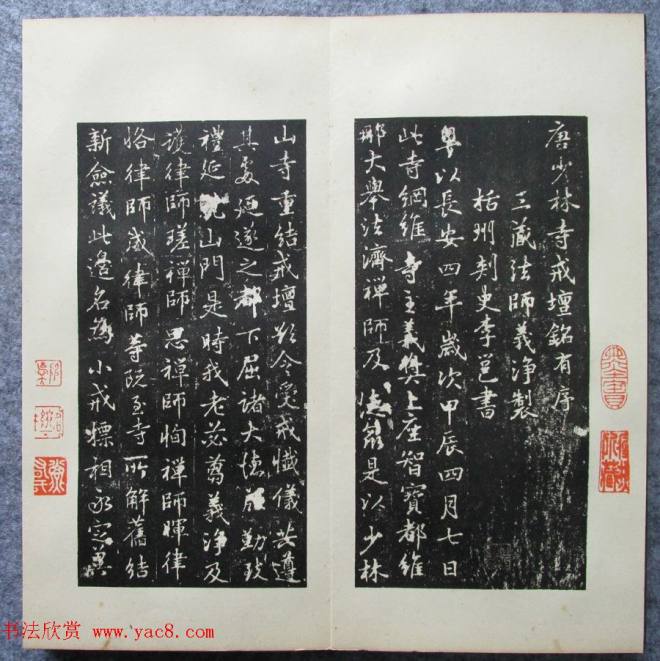 唐少林寺戒壇銘有序
三藏法師義淨製
括州刺史李邕書
粤以長安四年歲次甲辰四月七日
此寺綱維寺主義奬上座智寶都維
那大舉法濟禪師及是以少林
山寺重結戒壇欲令受戒懺儀共遵
其處廼遂之都下屈諸大德殷勤致
禮延就山門是時我老苾蒭義淨及
護律師瑳禪師思禪師恂禪師暉律
恪律師威律師等既至寺所解舊結
新僉議此邊名為小戒標相永定冀
书法欣赏 www.yac8.com